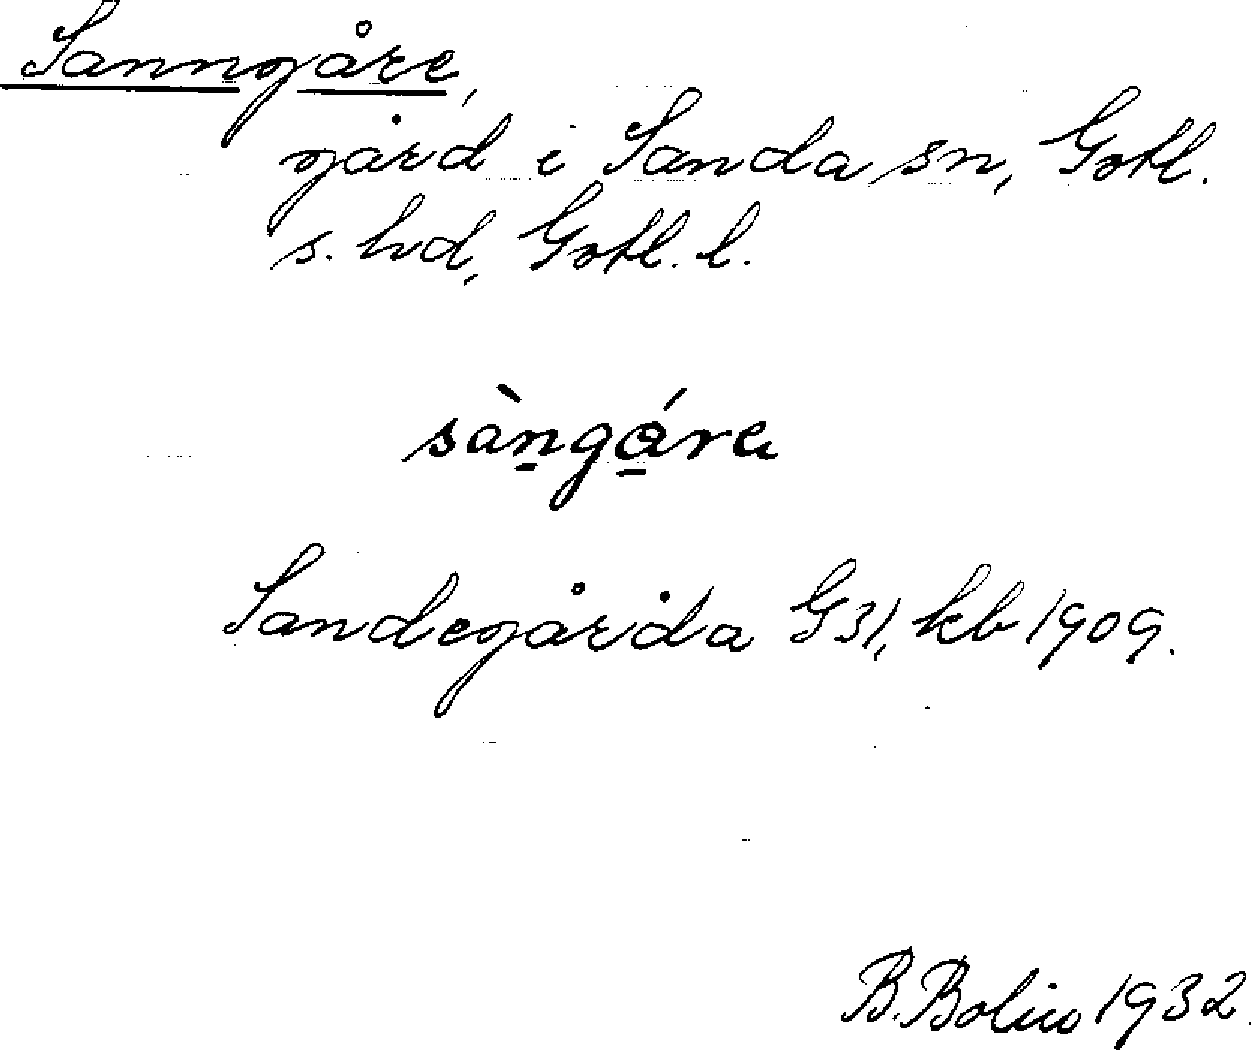 Sanngåre,
gård i Sanda sn, Gotl.
s. hd, Gotl. l.
sàn̠gá̠re
Sandegårda G31, kb 1909.
B. Bolin 1932.